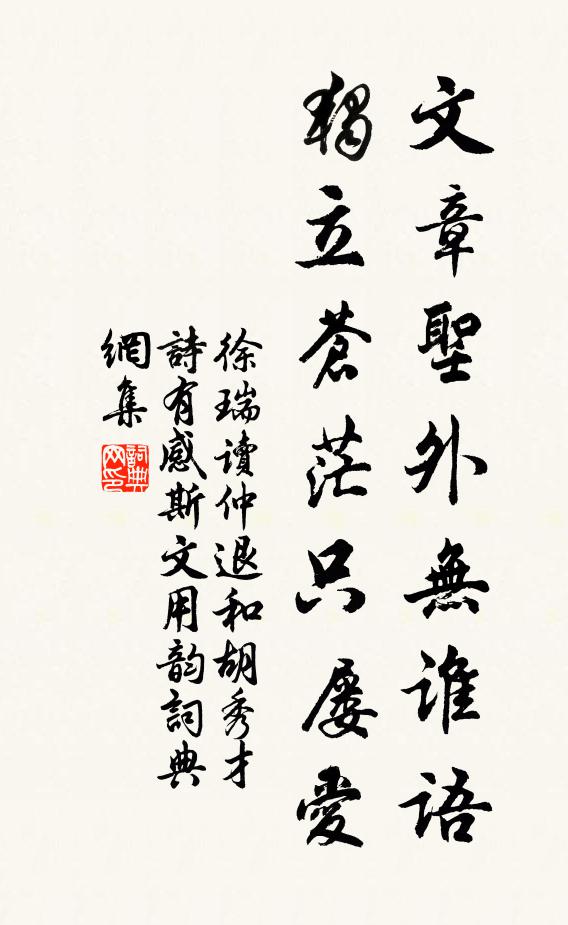 文章聖外無誰語
獨立蒼茫只屢愛
徐瑞讀仲退和胡秀才
詩有感斯文用韵詞典
網集
詞典
网印